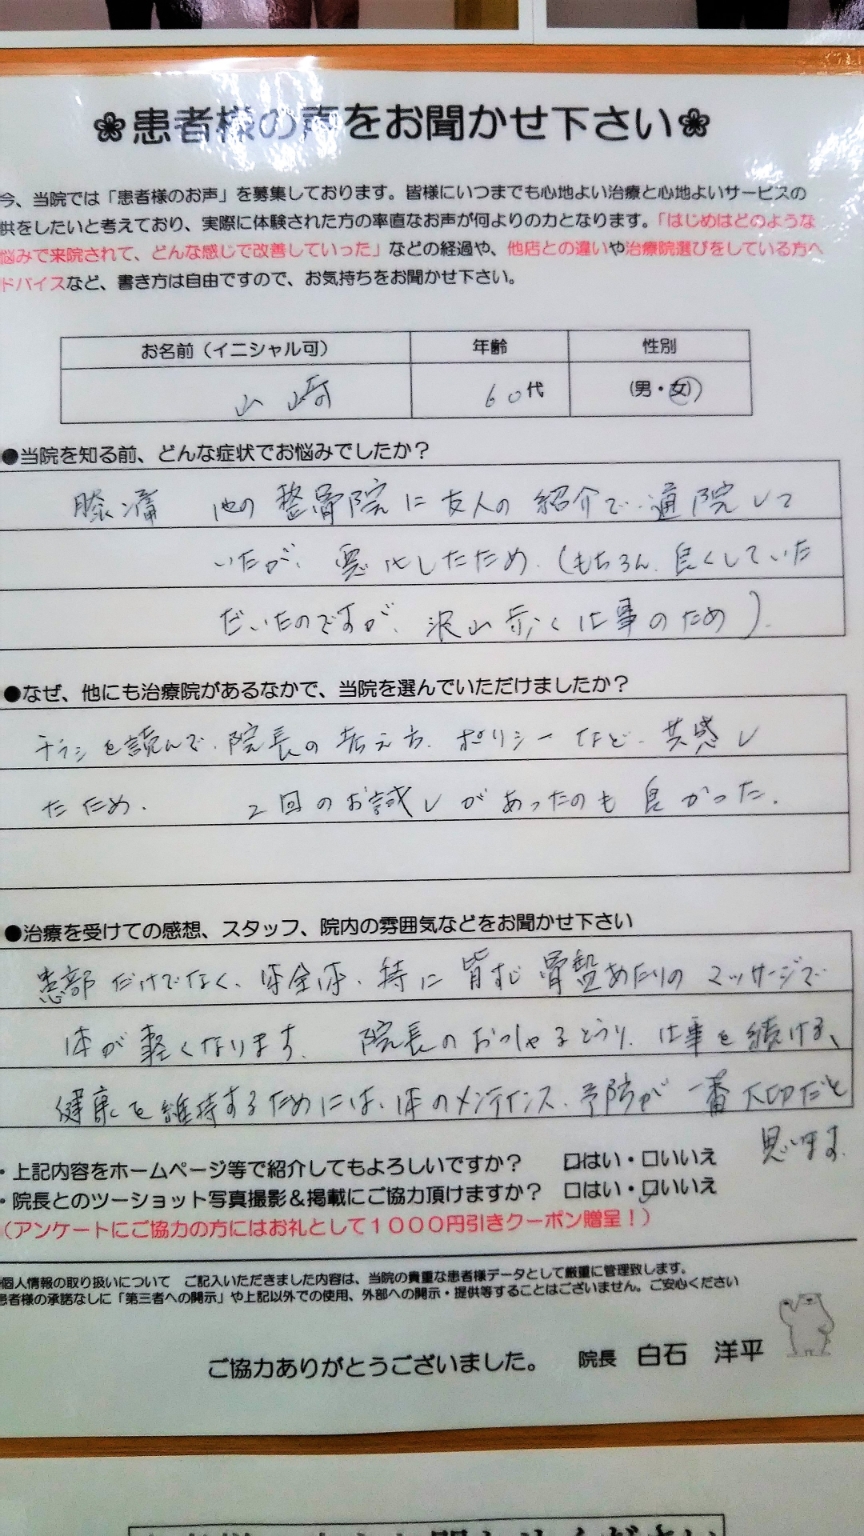 ❀患者様の声をお聞かせ下さい❀
今、当院では「患者様のお声」を募集しております。皆様にいつまでも心地よい治療と心地よいサービスの
供をしたいと考えており、実際に体験された方の率直なお声が何よりの力となります。「はじめはどのような
悩みで来院されて、どんな感じで改善していった」などの経過や、他店との違いや治療院選びをしている方へ
ドバイスなど、書き方は自由ですので、お気持ちをお聞かせ下さい。
お名前（イニシャル可） 年齢 性別
山崎 60代 （男・女）
●当院を知る前、どんな症状でお悩みでしたか？
膝痛 他の整骨院に友人の紹介で通院して
いたが、悪化したため。（もちろん、良くしていた
だいたのですが、沢山歩く仕事のため）．
●なぜ、他にも治療院があるなかで、当院を選んでいただけましたか？
チラシを読んで、院長の考え方、ポリシーなど、共感し
たため． 2回のお試しがあったのも良かった．
●治療を受けての感想、スタッフ、院内の雰囲気などをお聞かせ下さい
患部だけでなく、体全体、特に背すじ骨盤あたりのマッサージで
体が軽くなります． 院長のおっしゃるとうり、仕事を続ける、
健康を維持するためには、体のメンテインス、予防が一番大切だと
思います．
・上記内容をホームページ等で紹介してもよろしいですか？ □はい・□いいえ
・院長とのツーショット写真撮影＆掲載にご協力頂けますか？ □はい・□いいえ
（アンケートにご協力の方にはお礼として１０００円引きクーポン贈呈！）
個人情報の取り扱いについて ご記入いただきました内容は、当院の貴重な患者様データとして厳重に管理致します。
患者様の承諾なしに「第三者への開示」や上記以外での使用、外部への開示・提供等することはございません。ご安心ください
ご協力ありがとうございました。 院長 白石 洋平